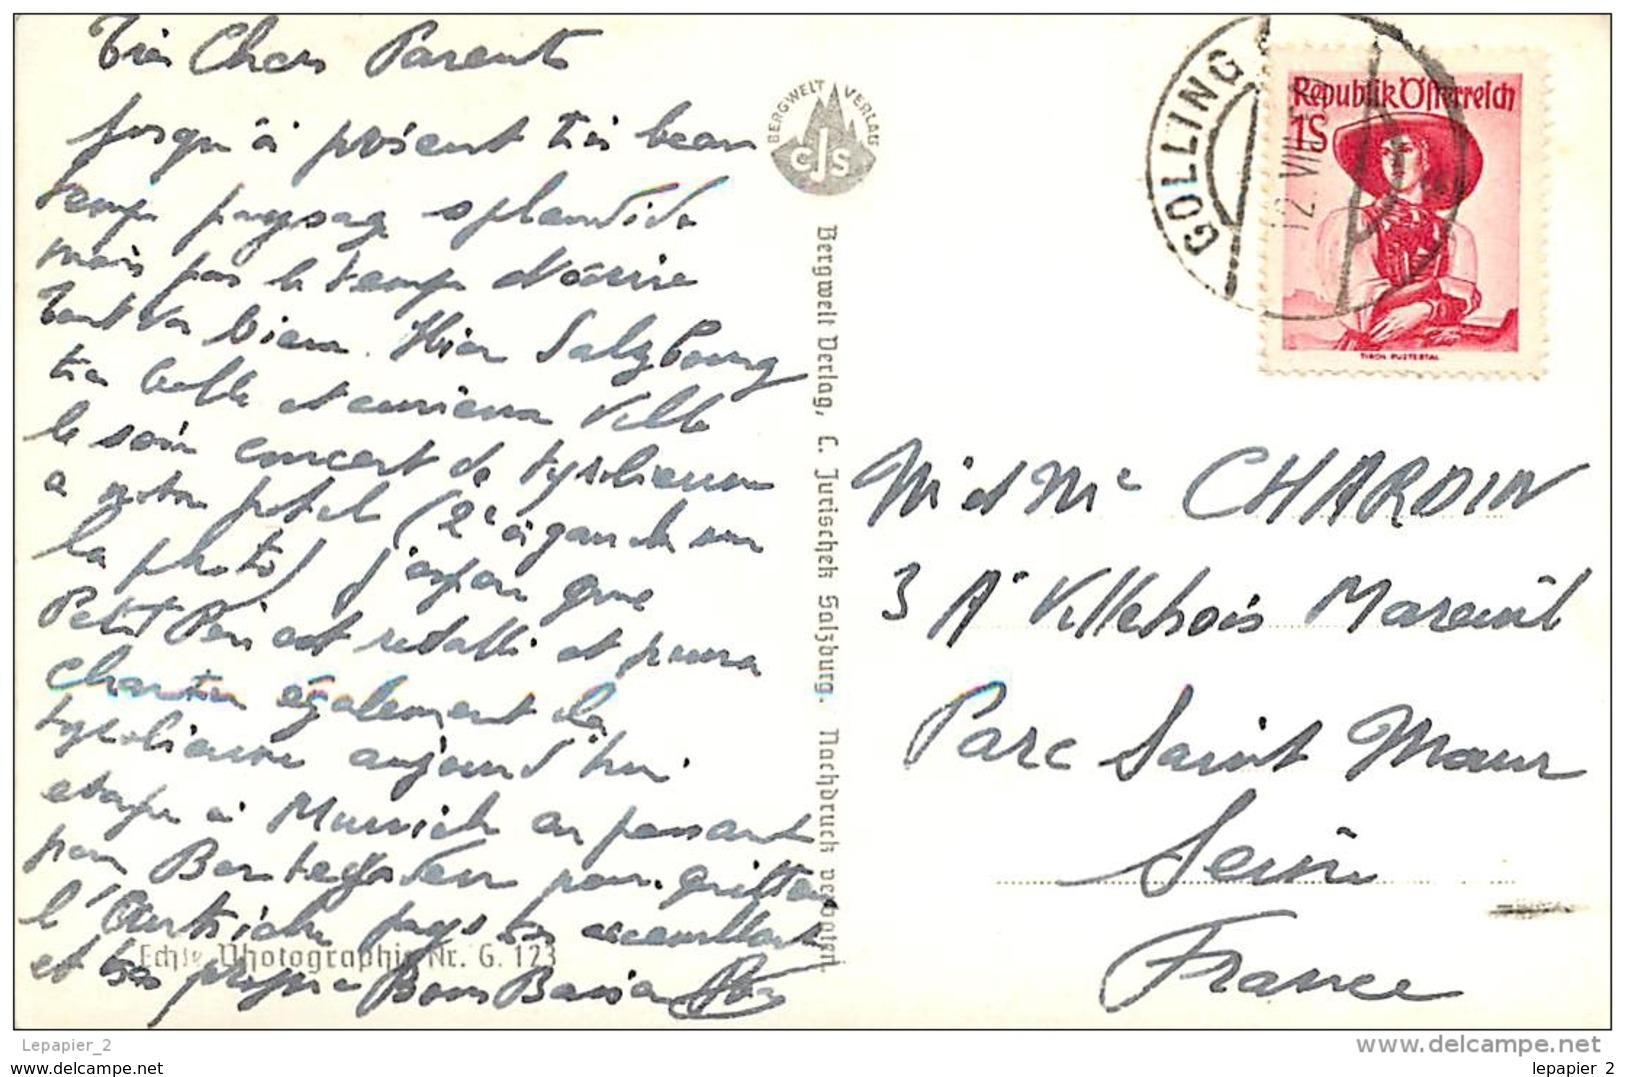 Très Chers Parents
Jusqu'à présent très beau
temps paysage splendide
mais par le temps
tout va bien. Hier Salzbourg
très belle et curieuse Ville
le soir concert de tyroliennes
a notre hotel (2e à gauche sur
la photo) j'espère que
Petit Père est rétabli et pourra
chanter également des
tyroliennes aujourd'hui
etape à Munich en passant
par pour quitter
l'Autriche pays très accueillant
et très propre Bons Baisers
BERGWELT VERLAG
CJS
Bergwelt Verlag, C. Jurischek Salzburg. Nachdruck verboten.
Echte Photographie Nr. G. 123
GOLLING
12. VIII.
Republik Österreich
1S
TIROL PUSTERTAL
M et Me CHARDIN
3 Ar Villebois Mareuil
Parc Saint Maur
Seine
France
Lepapier_2
www.delcampe.net
www.delcampe.net
lepapier_2